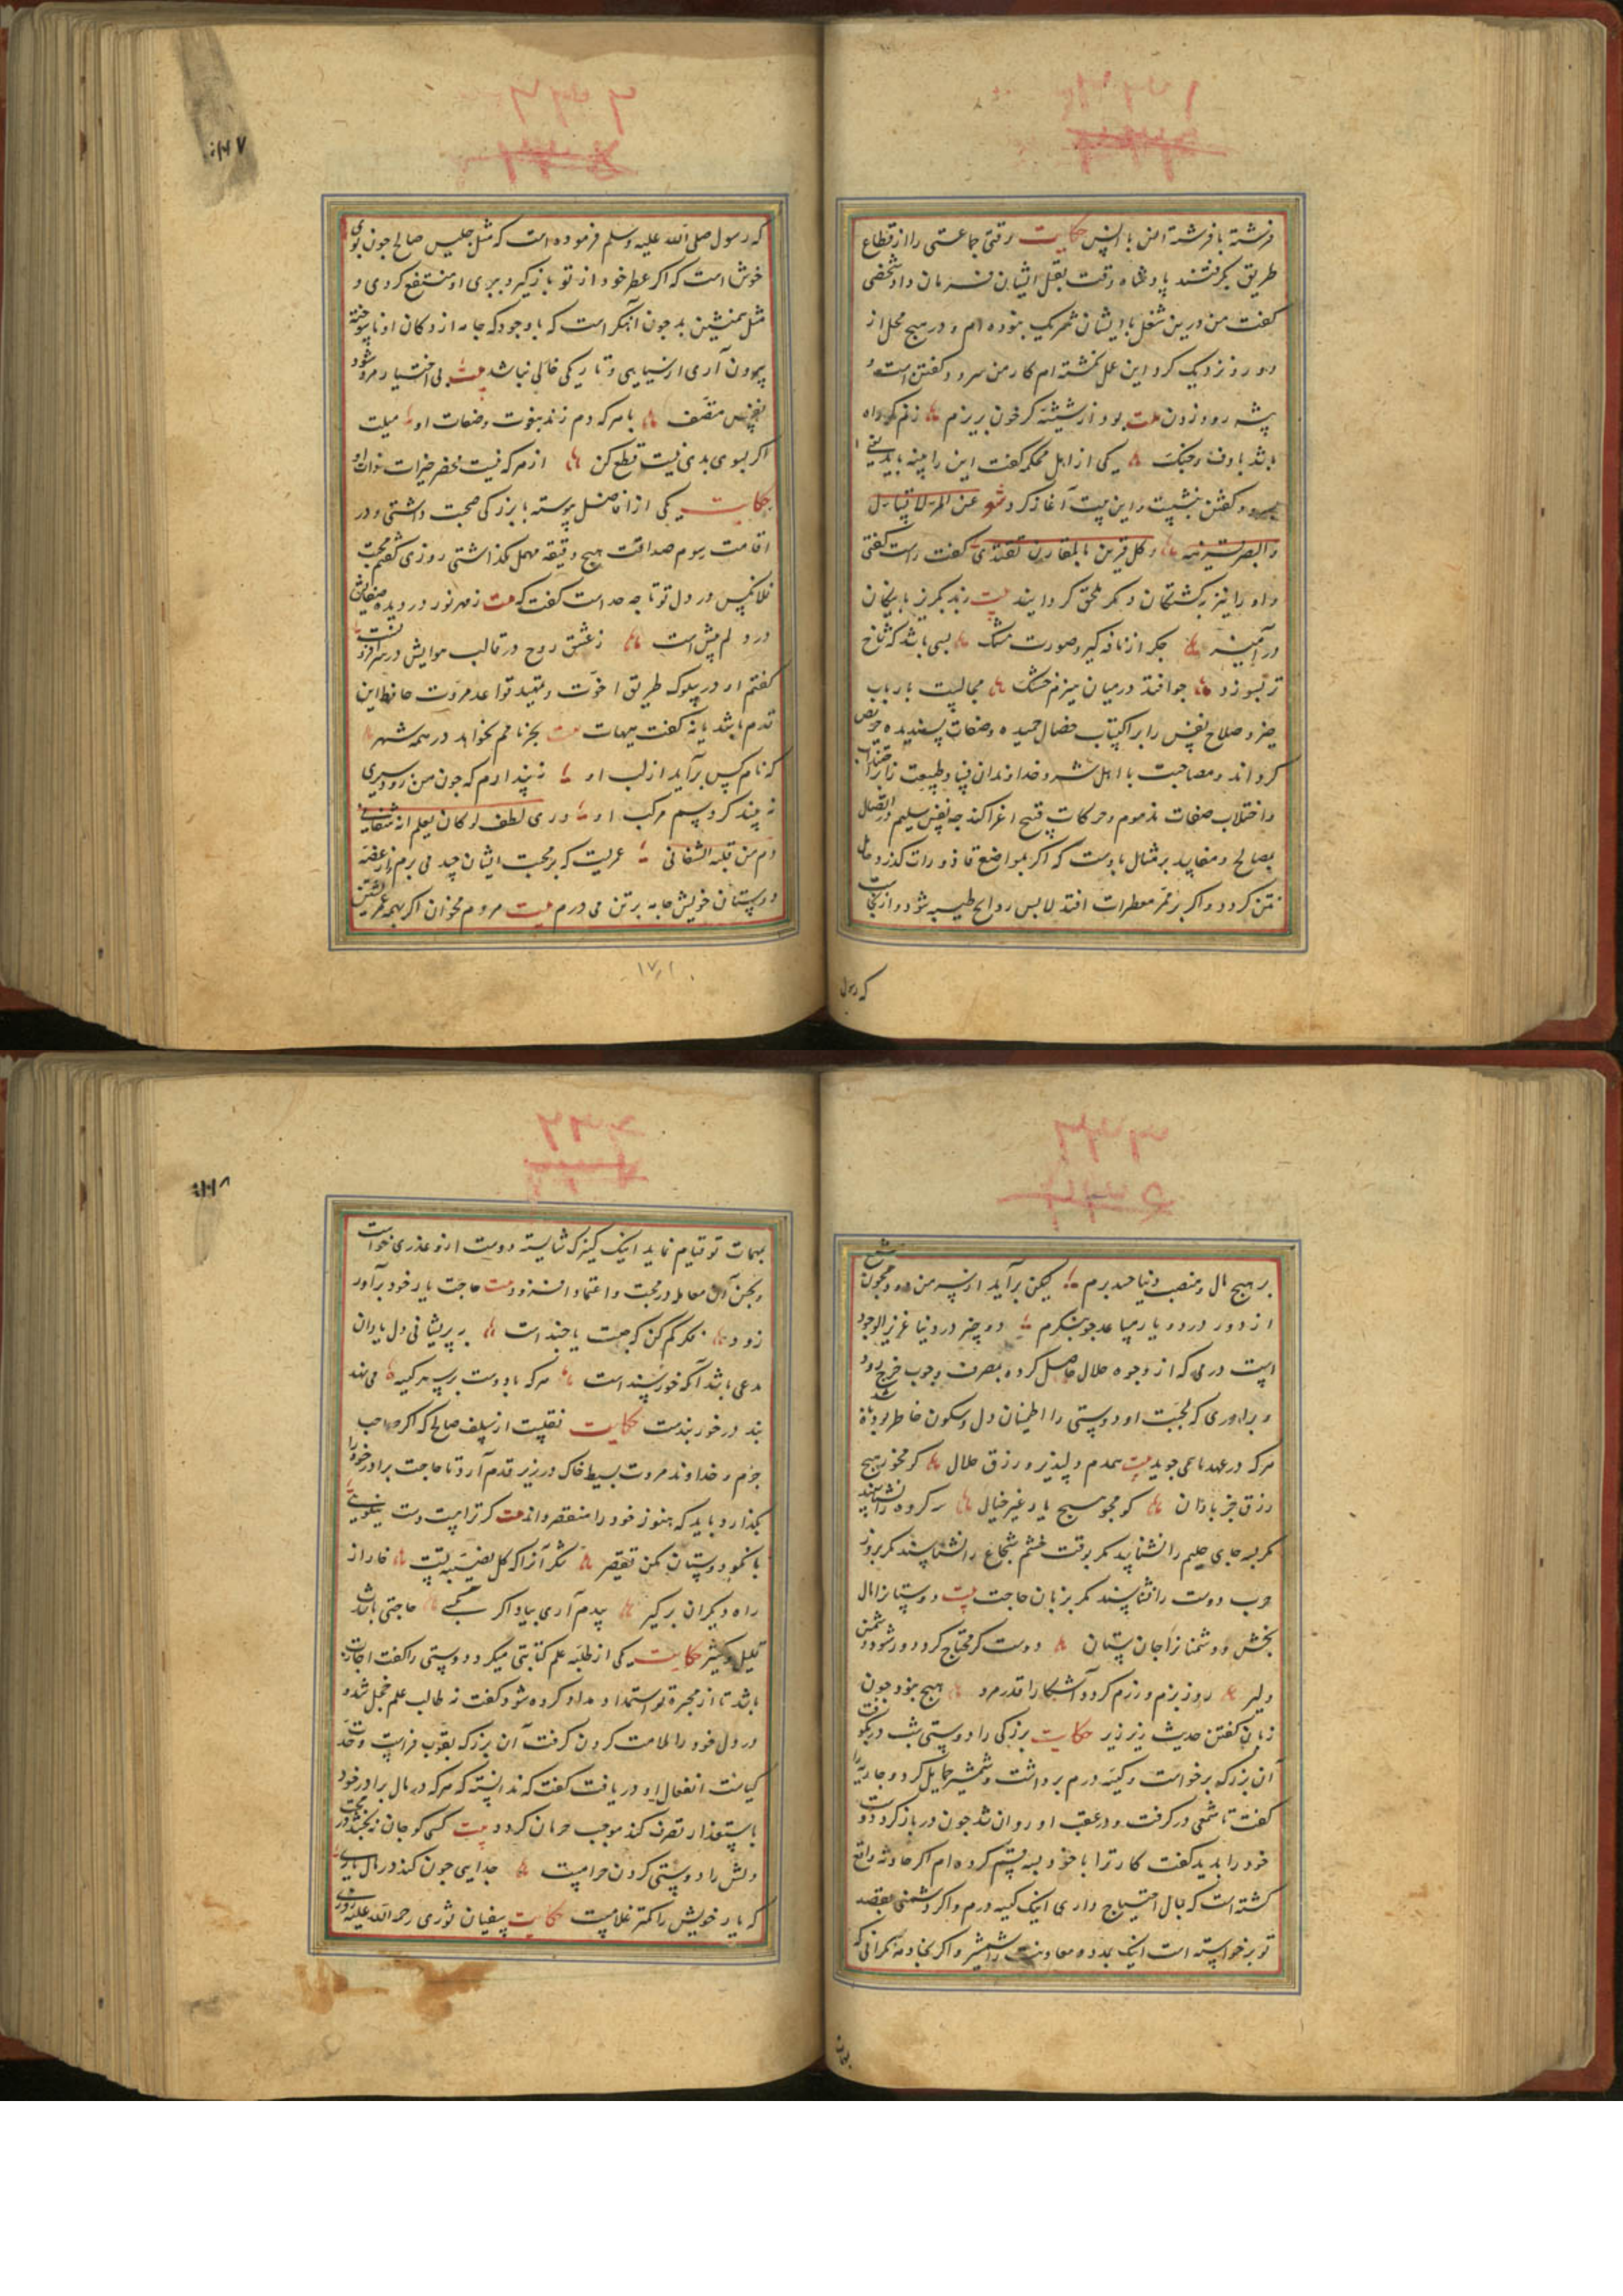 فرشته با فرشته انس با انس حکایت وقتی جماعتی را از قطاع
طریق بگرفتند پادشاه وقت بقتل ایشان فرمان داد شخصی
کفت من درین شغل با ایشان شریک نبوده ام و در هیچ محل از
دور و نزدیک کرد این عمل نکشته ام کار من سرود کفتن است و
پیشه رود زدن بیت بود از شیشه کر خون بریزم زنم کر راه
باشد با دف و چنک یکی از اهل محکمه کفت این را چه باید
سرود کفتن بنشست و این بیت آغاز کرد شعر عن المرء لا تسال
وابصر قرینه وکل قرین بالمقارن یقتدی کفت راست کفتی
و او را نیز بکشتکان دیکر ملحق کردانیدند بیت زبد بکریز با نیکان
درآمیز جکر از نافه کیرد صورت مشک بسی باشد که شاخ
تر بسوزد جو افتد در میان هیزم خشک مجالست با ارباب
خیر و صلاح نفس را بر اکتساب خصال حمیده و صفات پسندیده حریص
کرداند و مصاحبت با اهل شر و خداوندان فساد طبیعت را بر اجتذاب
و اختلاب صفات مذموم و حرکات قبیح اغرا کند چه نفس سلیم در اتصال
بصالح و مفاسد بر مثال بادست که اکر بمواضع قاذورات کذرد حامل
نتن کردد و اکر بر ممر معطرات افتد لابس روایح طیبه شود و ازینجاست
که رسول
که رسول صلی الله علیه وسلم فرموده است که مثل جلیس صالح جون بوی
خوش است که اکر عطر خود از تو بازکیرد ببوی او منتفع کردی و
مثل همنشین بد جون آهنکر است که با وجود که جامه از دکان او ناسوخته
بیرون آری از سیاهی و تاریکی خالی نباشد بیت بی اختیار مرد شود
نفس متصف با هر که دم زند بنعوت و صفات او میلت
اکر بسوی بدی نیست قطع کن از هر که نیست محض خیرات ذات او
حکایت یکی از افاضل پیوسته با بزرکی صحبت داشتی و در
اقامت رسوم صداقت هیچ دقیقه مهمل نکذاشتی روزی کفتم محبت
فلانکس در دل تو تا چه حد است کفت که بیت ز مهر نور در دیده صفایش
در دلم بیش است ز عشق روح در قالب هوایش در سر افزونست
کفتم او در سلوک طریق اخوت و تمهید قواعد مروت حافظ این
قدم باشد یا نه کفت هیهات بیت بجز نامم نخواهد در همه شهر
که نام کس برآید از لب او نپندارم که جون من زود سیری
نه بیند کرد سم مرکب او و ری لطف لو کان یعلم انه شفایی
دم من قبله الشفانی عمریست که بر محبت ایشان حسد می برم از غصه
دوستان خویش جامه بر تن می درم بیت مردم مخوان اکر همه عمر خویشتن
۱۷۱
بر هیچ مال و منصب دنیا حسد برم لیکن برآید از سر من دود جون
از دور در دو یار مساعد جو بنکرم دو چیز در دنیا عزیز الوجود
است درمی که از وجوه حلال حاصل کرده بمصرف وجوب خرج رود
و برادری که بمحبت او و دوستی را اطمینان دل و سکون خاطر بود
هر که در عهد ما می جوید بیت همدم دلپذیر و رزق حلال کو مخور هیچ
رزق جز باذان کو مجو هیچ یار غیر خیال سه کروه را نشناسند
مکر بسه جای حلیم را نشناسند مکر بوقت خشم شجاع را نشناسند مکر بروز
حرب دوست را نشناسند مکر بزمان حاجت بیت دوستانرا مال
بخش و دشمنانرا جان ستان دوست کر محتاج کردد دور شود دشمن
دلیر روز بزم و رزم کردد آشکارا قدر مرد هیچ نبود جون
زبان کفتن حدیث زیر زیر حکایت بزرکی را دوستی شب در بکوفت
آن بزرک برخواست و کیسه درم برداشت و شمشیر حمایل کرد و جاریه را
کفت تا شمعی درکرفت و در عقب او روان شد جون در باز کرد دوست
خود را بدید کفت کار ترا با خود بسه قسم کرده ام اکر حادثه واقع
کشته است که بمال احتیاج داری اینک کیسه درم و اکر دشمنی بقصد
تو برخواسته است اینک مدد و معاونت را شمشیر و اکر بخادمه نکرانی که
بمهمات
بمهمات تو قیام نماید اینک کنیزک شایسته دوست ازو عذری خواست
و بحسن آن معامله در محبت و اعتماد افزود بیت حاجت یار خود برآور
زود فکر کم کن که جست یا چند است به پریشانی دل یاران
مدعی باشد آنکه خورسند است هر که با دوست بر سر کیسه می نهد
بند در خور بندست حکایت نقلست از سلف صالح که اکر صاحب
حزم و خداوند مروت بسیط خاک در زیر قدم آرد تا حاجت برادر خود را
بکذارد باید که هنوز خود را مقصر داند بیت کر ترا هست دست نیکویی
با نکو دوستان مکن تقصیر مکر آنرا که کل نصیبه تست خار از
راه دیکران برکیر بدم آری بیاد اکر حاجتی باشدت
قلیل و کثیر حکایت یکی از طلبه علم کتابتی میکرد دوستی را کفت اجازت
باشد تا از محبره تو استمداد مداد کرده شود کفت نه طالب علم خجل شد و
در دل خود را ملامت کردن کرفت آن بزرک بقوت فراست و حدت
کیاست انفعال او دریافت کفت که ندانسته که هر که در مال برادر خود
باستیذان تصرف کند موجب حرمان کردد بیت کسی کو جان نه بخشد در محبت
دلش را دوستی کردن حرامست جدایی جون کند در مال یاری
که یار خویش را کمتر غلامست حکایت سفیان ثوری رحمة الله علیه روزی